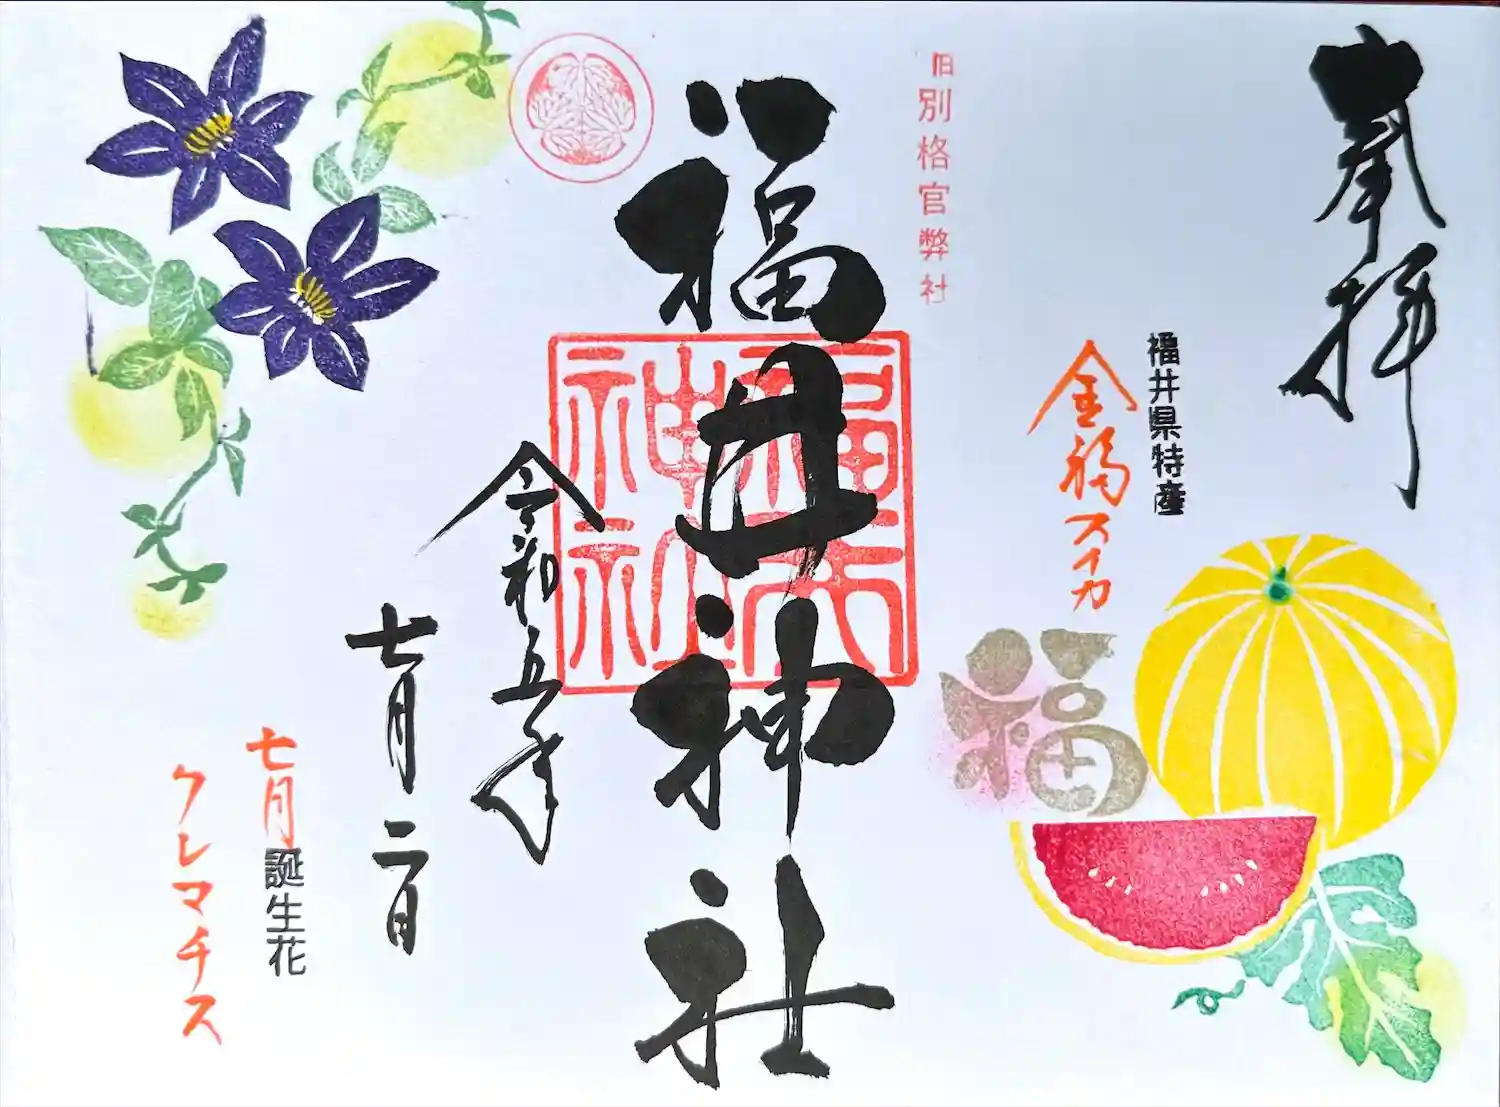 奉拝
福井県特産
金福スイカ
福
旧別格官弊社
福井神社
福井神社
令和五年
七月二日
七月誕生花
クレマチス